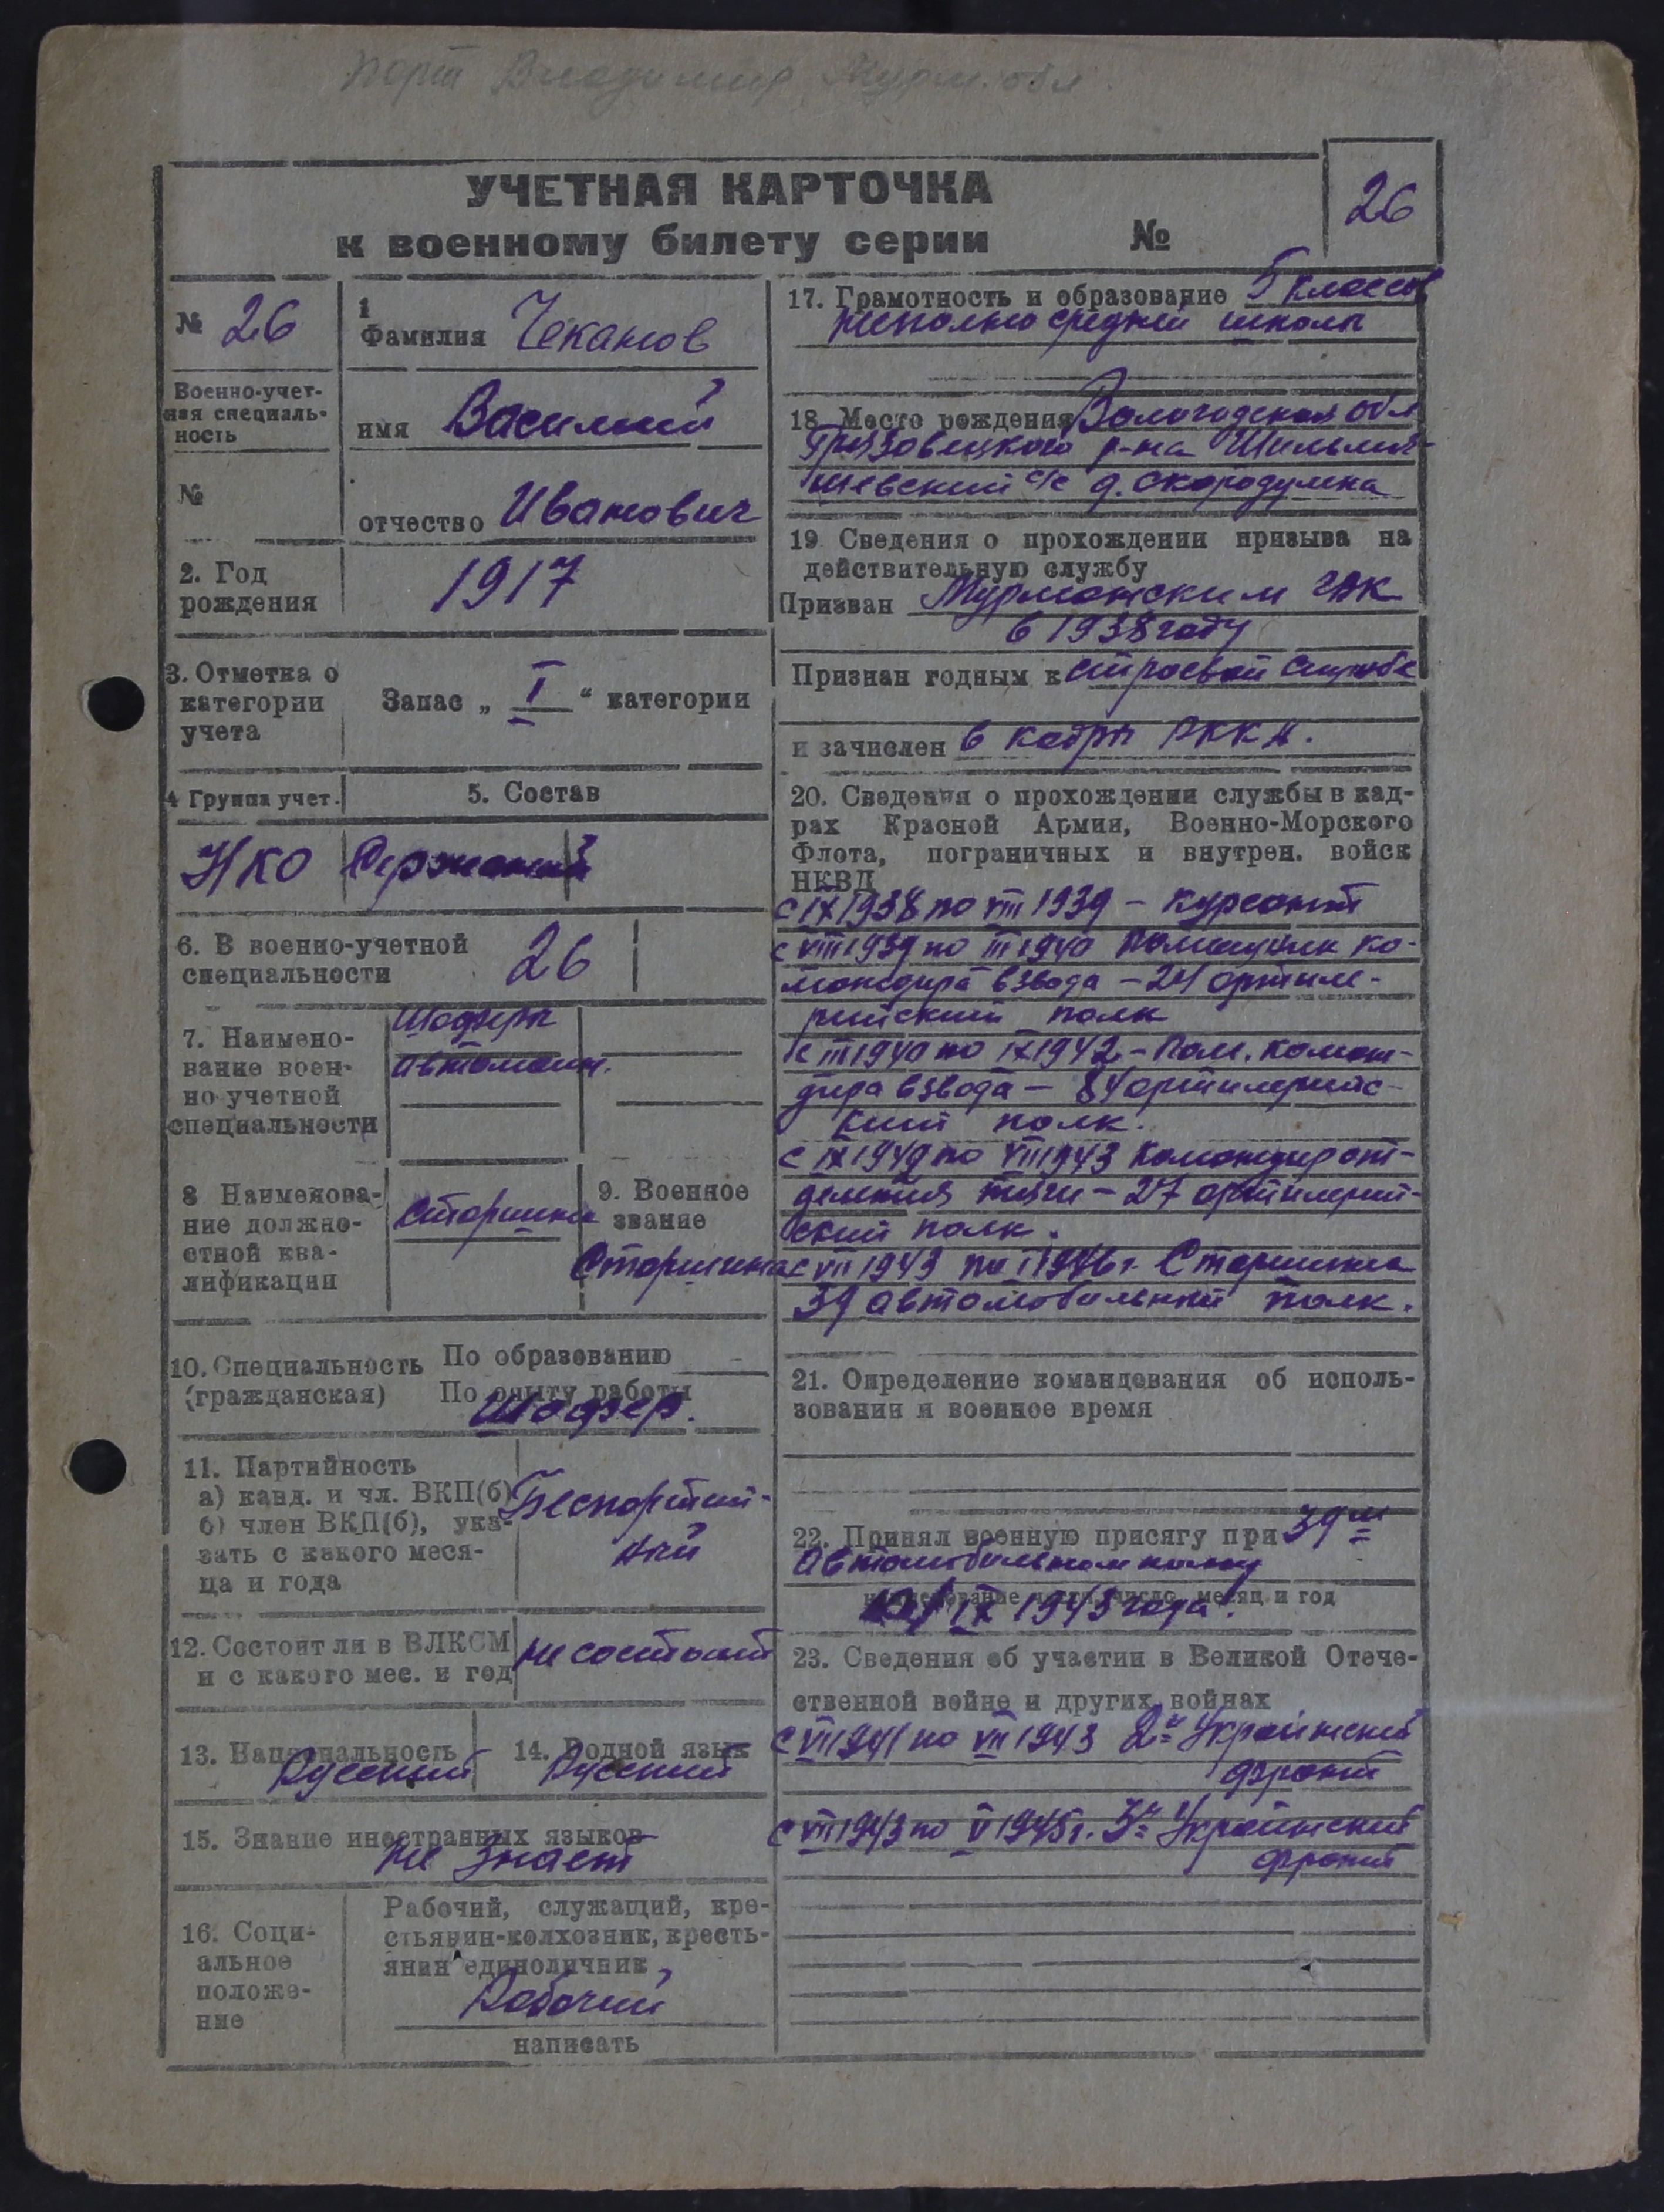 порт Владимир Мурм. обл.
УЧЕТНАЯ КАРТОЧКА
к военному билету серии №
26
№ 26
1
Фамилия Чеканов
Военно-учет-
ная специаль-
ность
имя Василий
№
отчество Иванович
2. Год
рождения
1917
3. Отметка о
категории
учета
Запас „ I “ категории
4 Группа учет.
5. Состав
НКО Сержант
6. В военно-учетной
специальности
26
7. Наимено-
вание воен-
но учетной
специальности
Шоферы
автомаш.
8 Наименова-
ние должно-
стной ква-
лификации
старшина
9. Военное
звание
Старшина
10. Специальность
(гражданская)
По образованию —
По опыту работы
Шофер.
11. Партийность
а) канд. и чл. ВКП(б)
б) член ВКП(б), ука-
зать с какого меся-
ца и года
Беспартий-
ный
12. Состоит ли в ВЛКСМ
и с какого мес. и год
не состоит
13. Национальность
Русский
14. Родной язык
Русский
15. Знание иностранных языков
не знает
16. Соци-
альное
положе-
ние
Рабочий, служащий, кре-
стьянин-колхозник, кресть-
янин единоличник
Рабочий
написать
17. Грамотность и образование 5 классов
неполно средней школы
18. Место рождения Вологодская обл
Грязовецкого р-на
шевский с/с д. Скородумка
19 Сведения о прохождении призыва на
действительную службу
Призван Мурманским
в 1938 году
Признан годным к строевой службе
и зачислен в кадры РККА.
20. Сведения о прохождении службы в кад-
рах Красной Армии, Военно-Морского
Флота, пограничных и внутрен. войск
НКВД
с IX 1938 по VIII 1939 – курсант
с VIII 1939 по III 1940 помощник ко-
мандира взвода – 24 артиле-
рийский полк
с III 1940 по IX 1942 – Пом. коман-
дира взвода – 84 артилерийс-
кий полк.
с IX 1942 по VIII 1943 Командир от-
деления тяги – 27 артилерий-
ский полк.
с VII 1943 по I 1946 г. Старшина
39 автомобильный полк.
21. Определение командования об исполь-
зовании я военное время
22. Принял военную присягу при 39 м
автомобильном полку
наименование части, число, месяц и год
IX 1943 года.
23. Сведения об участии в Великой Отече-
ственной войне и других войнах
с VII 1941 по VII 1943 2й Украинский
фронт
с VII 1943 по V 1945 г. 3й Украинский
фронт